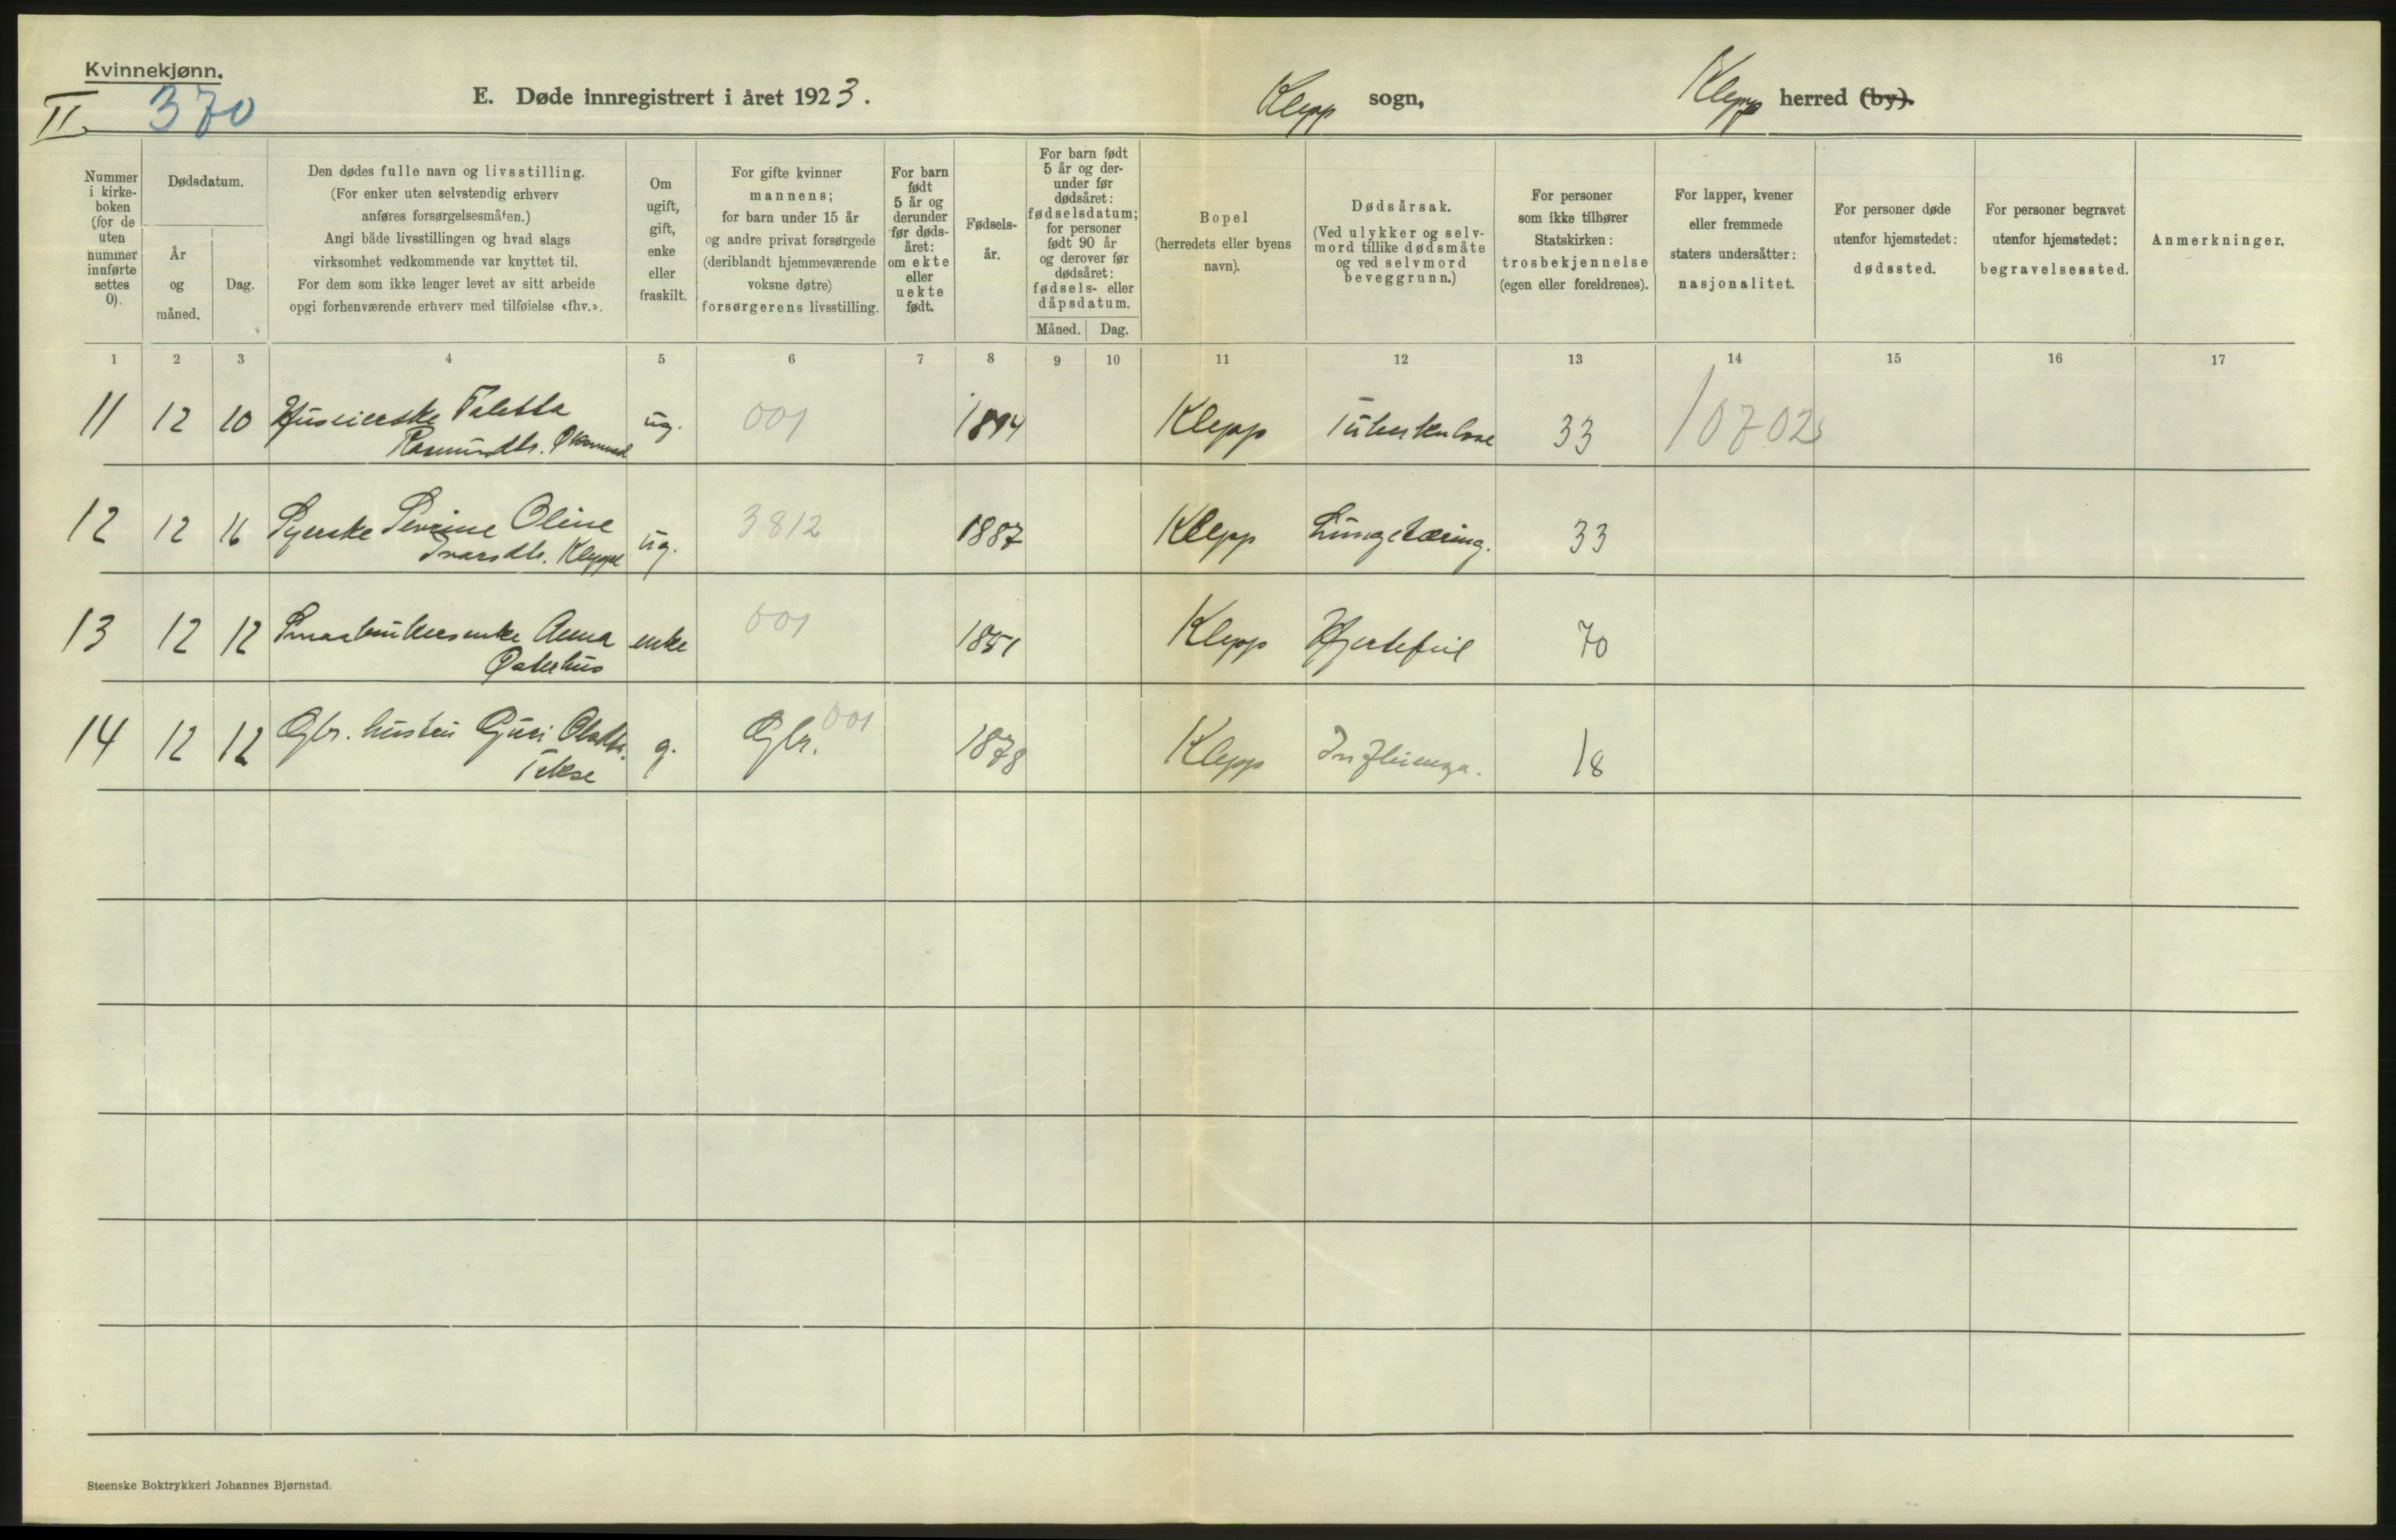 Kvinnekjønn.
II. 370
E. Døde innregistrert i året 1923.
Klepp sogn,
Klepp herred (by).
Nummer i kirke-boken (for de uten nummer innførte settes 0).
Dødsdatum.
År og måned.
Dag.
Den dødes fulle navn og livsstilling.
(For enker uten selvstendig erhverv
anføres forsørgelsesmåten.)
Angi både livsstillingen og hvad slags
virksomhet vedkommende var knyttet til.
For dem som ikke lenger levet av sitt arbeide
opgi forhenværende erhverv med tilføielse «fhv.».
Om ugift, gift, enke eller fraskilt.
For gifte kvinner
mannens;
for barn under 15 år
og andre privat forsørgede
(deriblandt hjemmeværende
voksne døtre)
forsørgerens livsstilling.
For barn født 5 år og derunder før døds-året: om ekte eller uekte født.
Fødsels-år.
For barn født 5 år og der-under før dødsåret: fødselsdatum; for personer født 90 år og derover før dødsåret: fødsels- eller dåpsdatum.
Måned. Dag.
Bopel
(herredets eller byens
navn).
Dødsårsak.
(Ved ulykker og selv-
mord tillike dødsmåte
og ved selvmord
beveggrunn.)
For personer
som ikke tilhører
Statskirken:
trosbekjennelse
(egen eller foreldrenes).
For lapper, kvener
eller fremmede
staters undersåtter:
nasjonalitet.
For personer døde
utenfor hjemstedet:
dødssted.
For personer begravet
utenfor hjemstedet:
begravelsessted.
Anmerkninger.
1 2 3 4 5 6 7 8 9 10 11 12 13 14 15 16 17
11 12 10 Huseierske Taletta ug. 001 1894 Klepp Tuberkulose 33 10702
Rasmundtr.
12 12 16 Syerske Serine Oline ug. 3812 1887 Klepp Lungetæring. 33
Ivarsdtr. Kleppe
13 12 12 Smaabrukersenke Anna enke 001 1851 Klepp Hjertefeil 70
Østerhus
14 12 12 Gbr. hustru Guri Olsdtr. g. Gbr. 001 1878 Klepp Influenza. 18
Tikse
Steenske Boktrykkeri Johannes Bjørnstad.